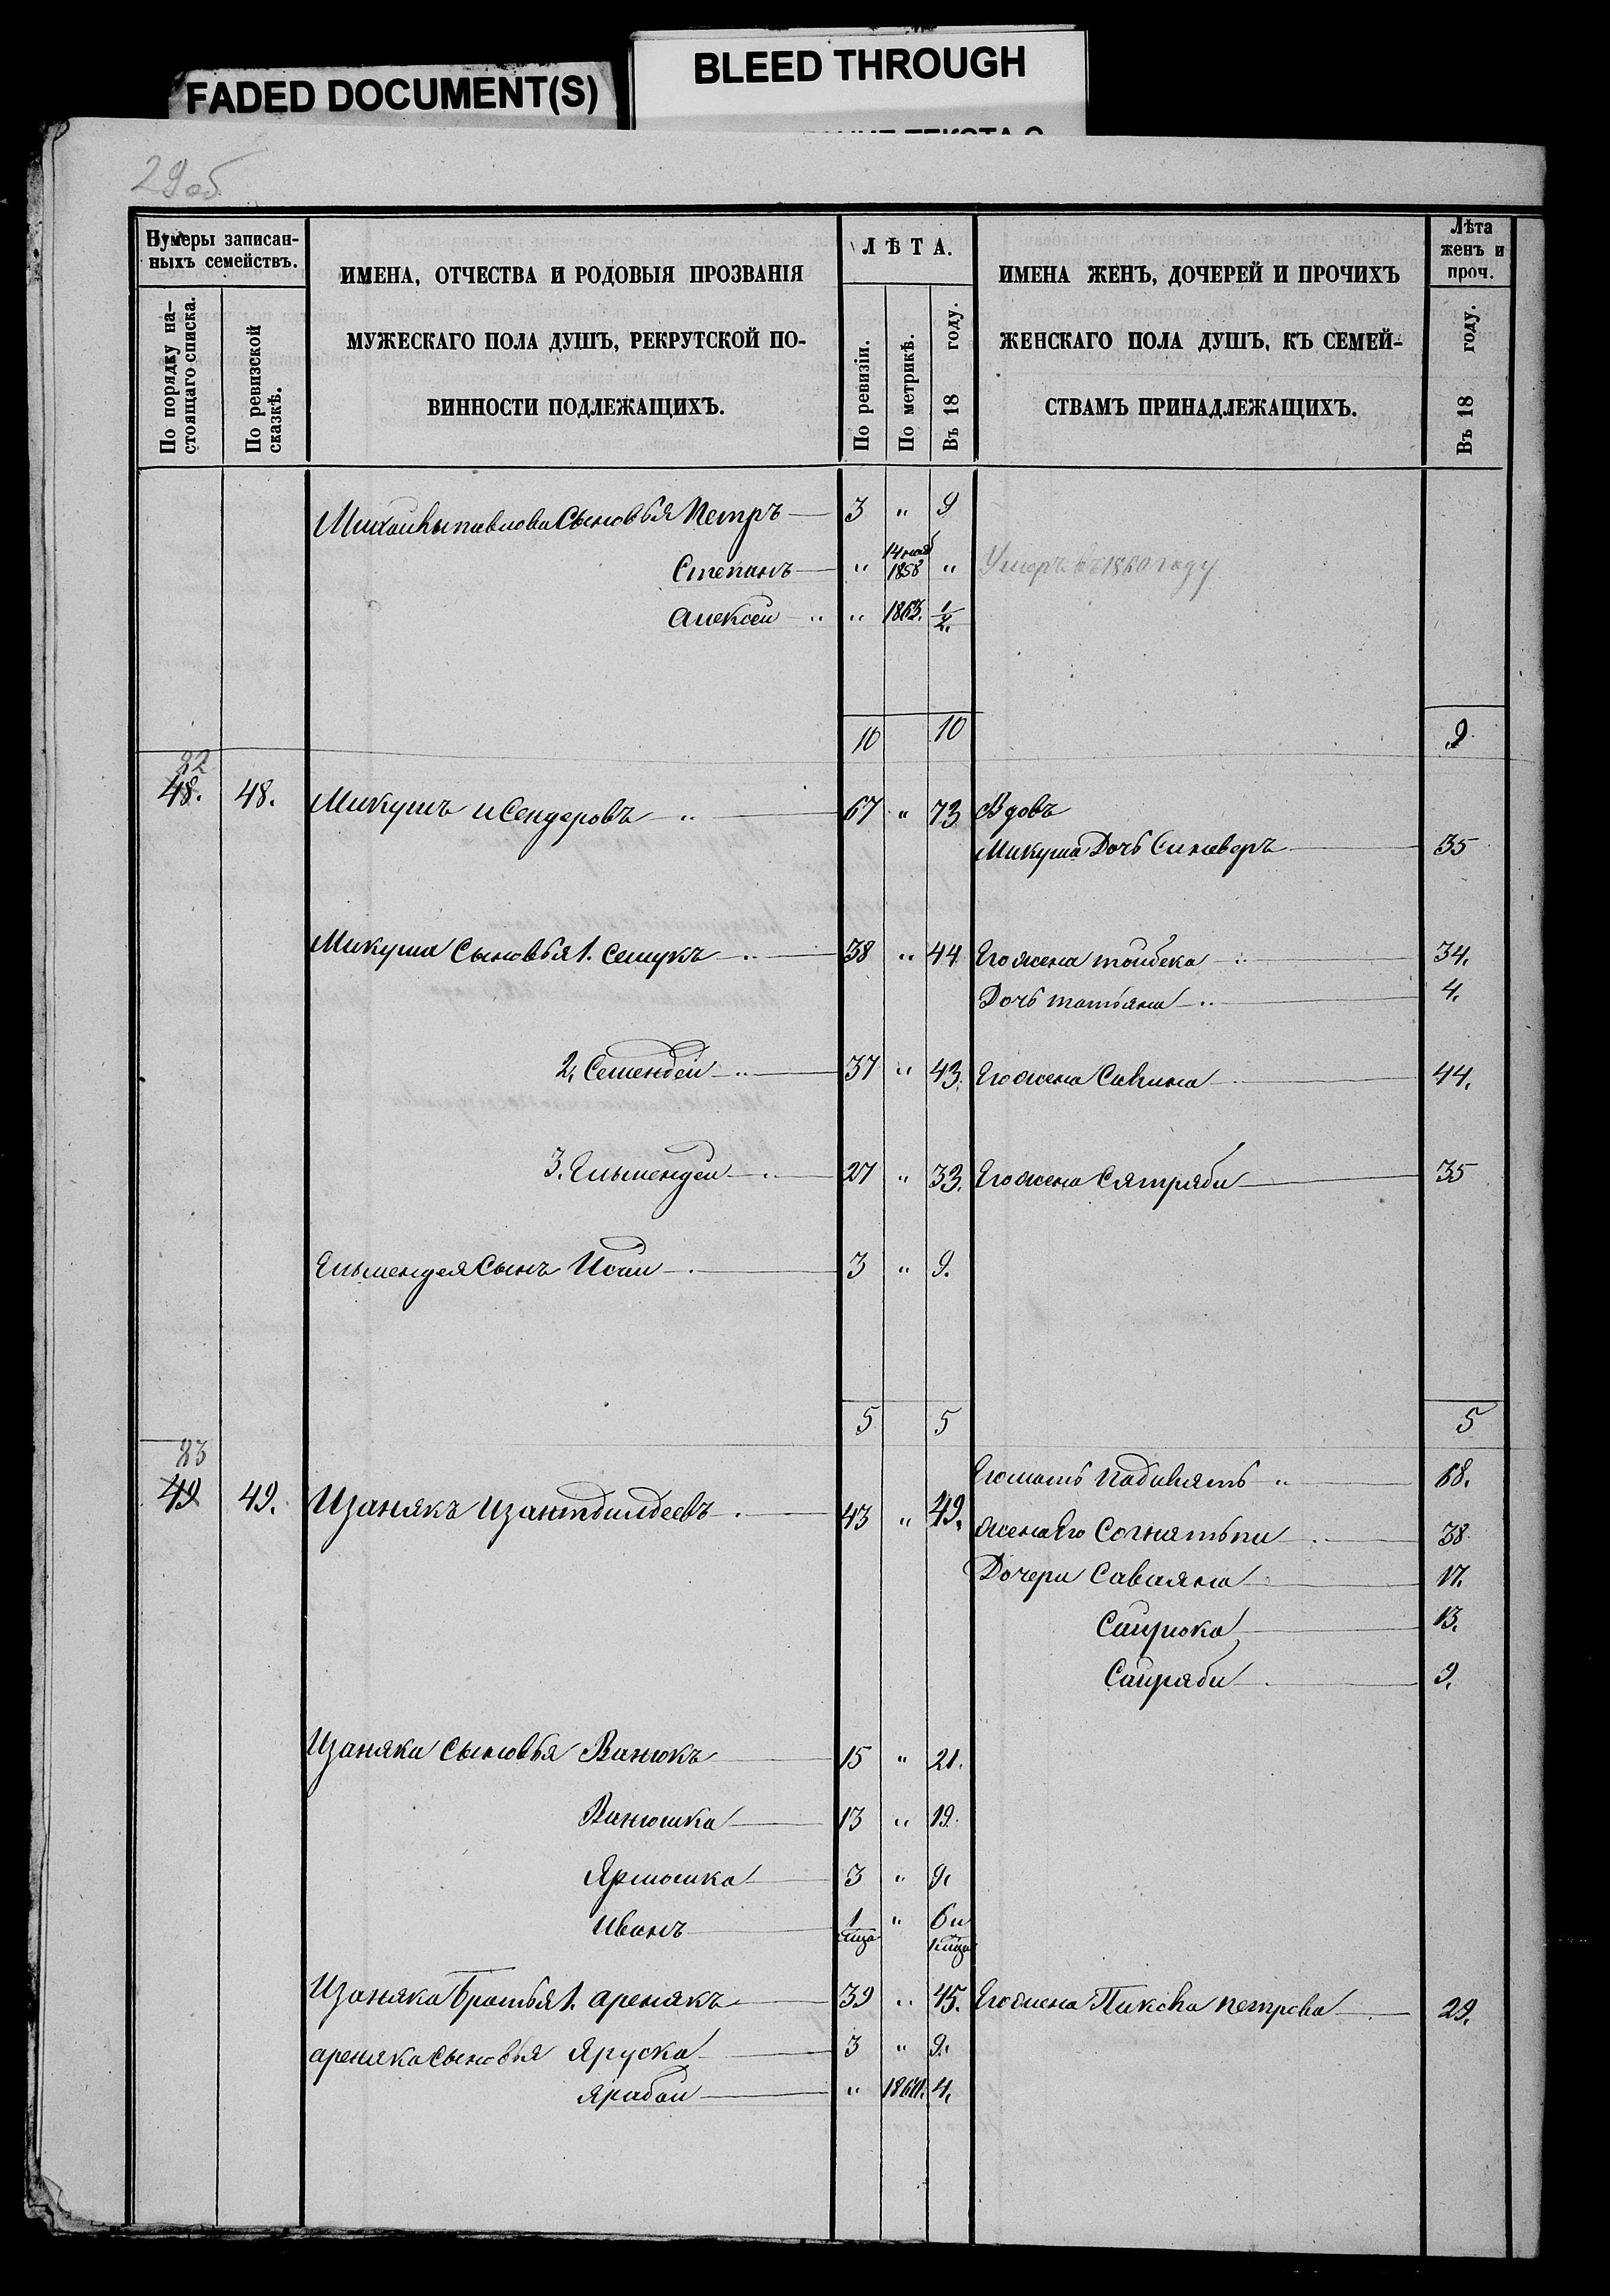 FADED DOCUMENT(S)
BLEED THROUGH
29 об
Нумеры записан-
ныхъ семействъ.
По порядку на-
стоящаго списка.
По ревизской
сказкѣ.
ИМЕНА, ОТЧЕСТВА И РОДОВЫЯ ПРОЗВАНІЯ
МУЖЕСКАГО ПОЛА ДУШЪ, РЕКРУТСКОЙ ПО-
ВИННОСТИ ПОДЛЕЖАЩИХЪ.
ЛѢТА.
По ревизіи.
По метрикѣ.
Въ 18 году.
ИМЕНА ЖЕНЪ, ДОЧЕРЕЙ И ПРОЧИХЪ
ЖЕНСКАГО ПОЛА ДУШЪ, КЪ СЕМЕЙ-
СТВАМЪ ПРИНАДЛЕЖАЩИХЪ.
Лѣта
женъ и
проч.
Въ 18 году.
павлова Сыновья Петръ 3 " 9
Степанъ " 1858 " Умеръ въ 1860 году
Алексеи " 1863. 1/2.
10 10 9
82
48. 48. Микушъ Исендеровъ 67 " 73 Вдовъ
Микуша Дочь Синеверъ 35
Микуша Сыновья 1. Семукъ 38 " 44 Его жена тойбека 34.
Дочь татьяна 4.
2. Семендеи 37 " 43. Его жена Савина 44.
3. Ельмендеи 27 " 33. Его жена Сятряби 35
Ельмендея Сынъ 3 " 9.
5 5 5
83
49 49. Изанякъ 43 " 49. Его мать 68.
жена Его 38
Дочери Саваяна 17.
Саирюка 13.
Саиряби 9.
Изаняка сыновья Ванюкъ 15 " 21.
Ванюшка 13 " 19.
Ярмошка 3 " 9.
Иванъ 1 " 6 и
Изаняка Братья 1. аренякъ 39 " 45. Его жена Пикова петрова 29.
ареняка сыновья Яруска 3 " 9.
Ярабаи " 1860. 4.